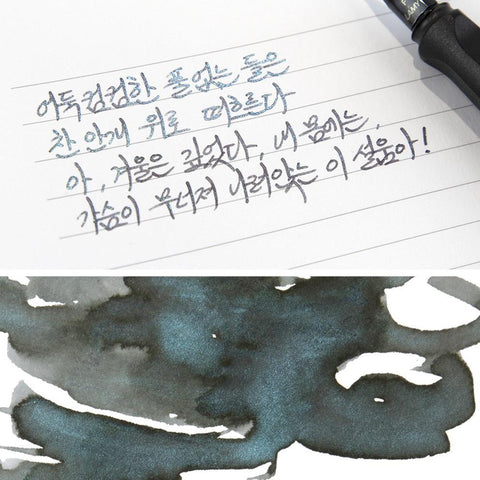 어둑컴컴한 풀 없는 들은
찬 안개 위로 떠흐른다
아, 겨울은 깊었다, 내 몸에는,
가슴이 무너져 내려앉는 이 설움아!
LAMY